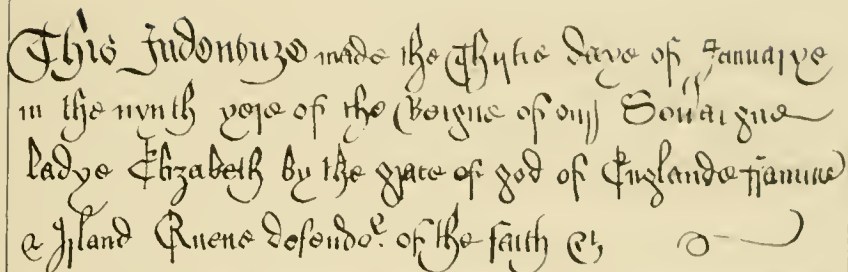 This Indenture made the Thyrtie daye of Januarye
in the nynth yere of the Reigne of our Sov'aigne
ladye Elizabeth by the grace of god of Englande ffraunce
& Irland Quene defendor of the faith &c